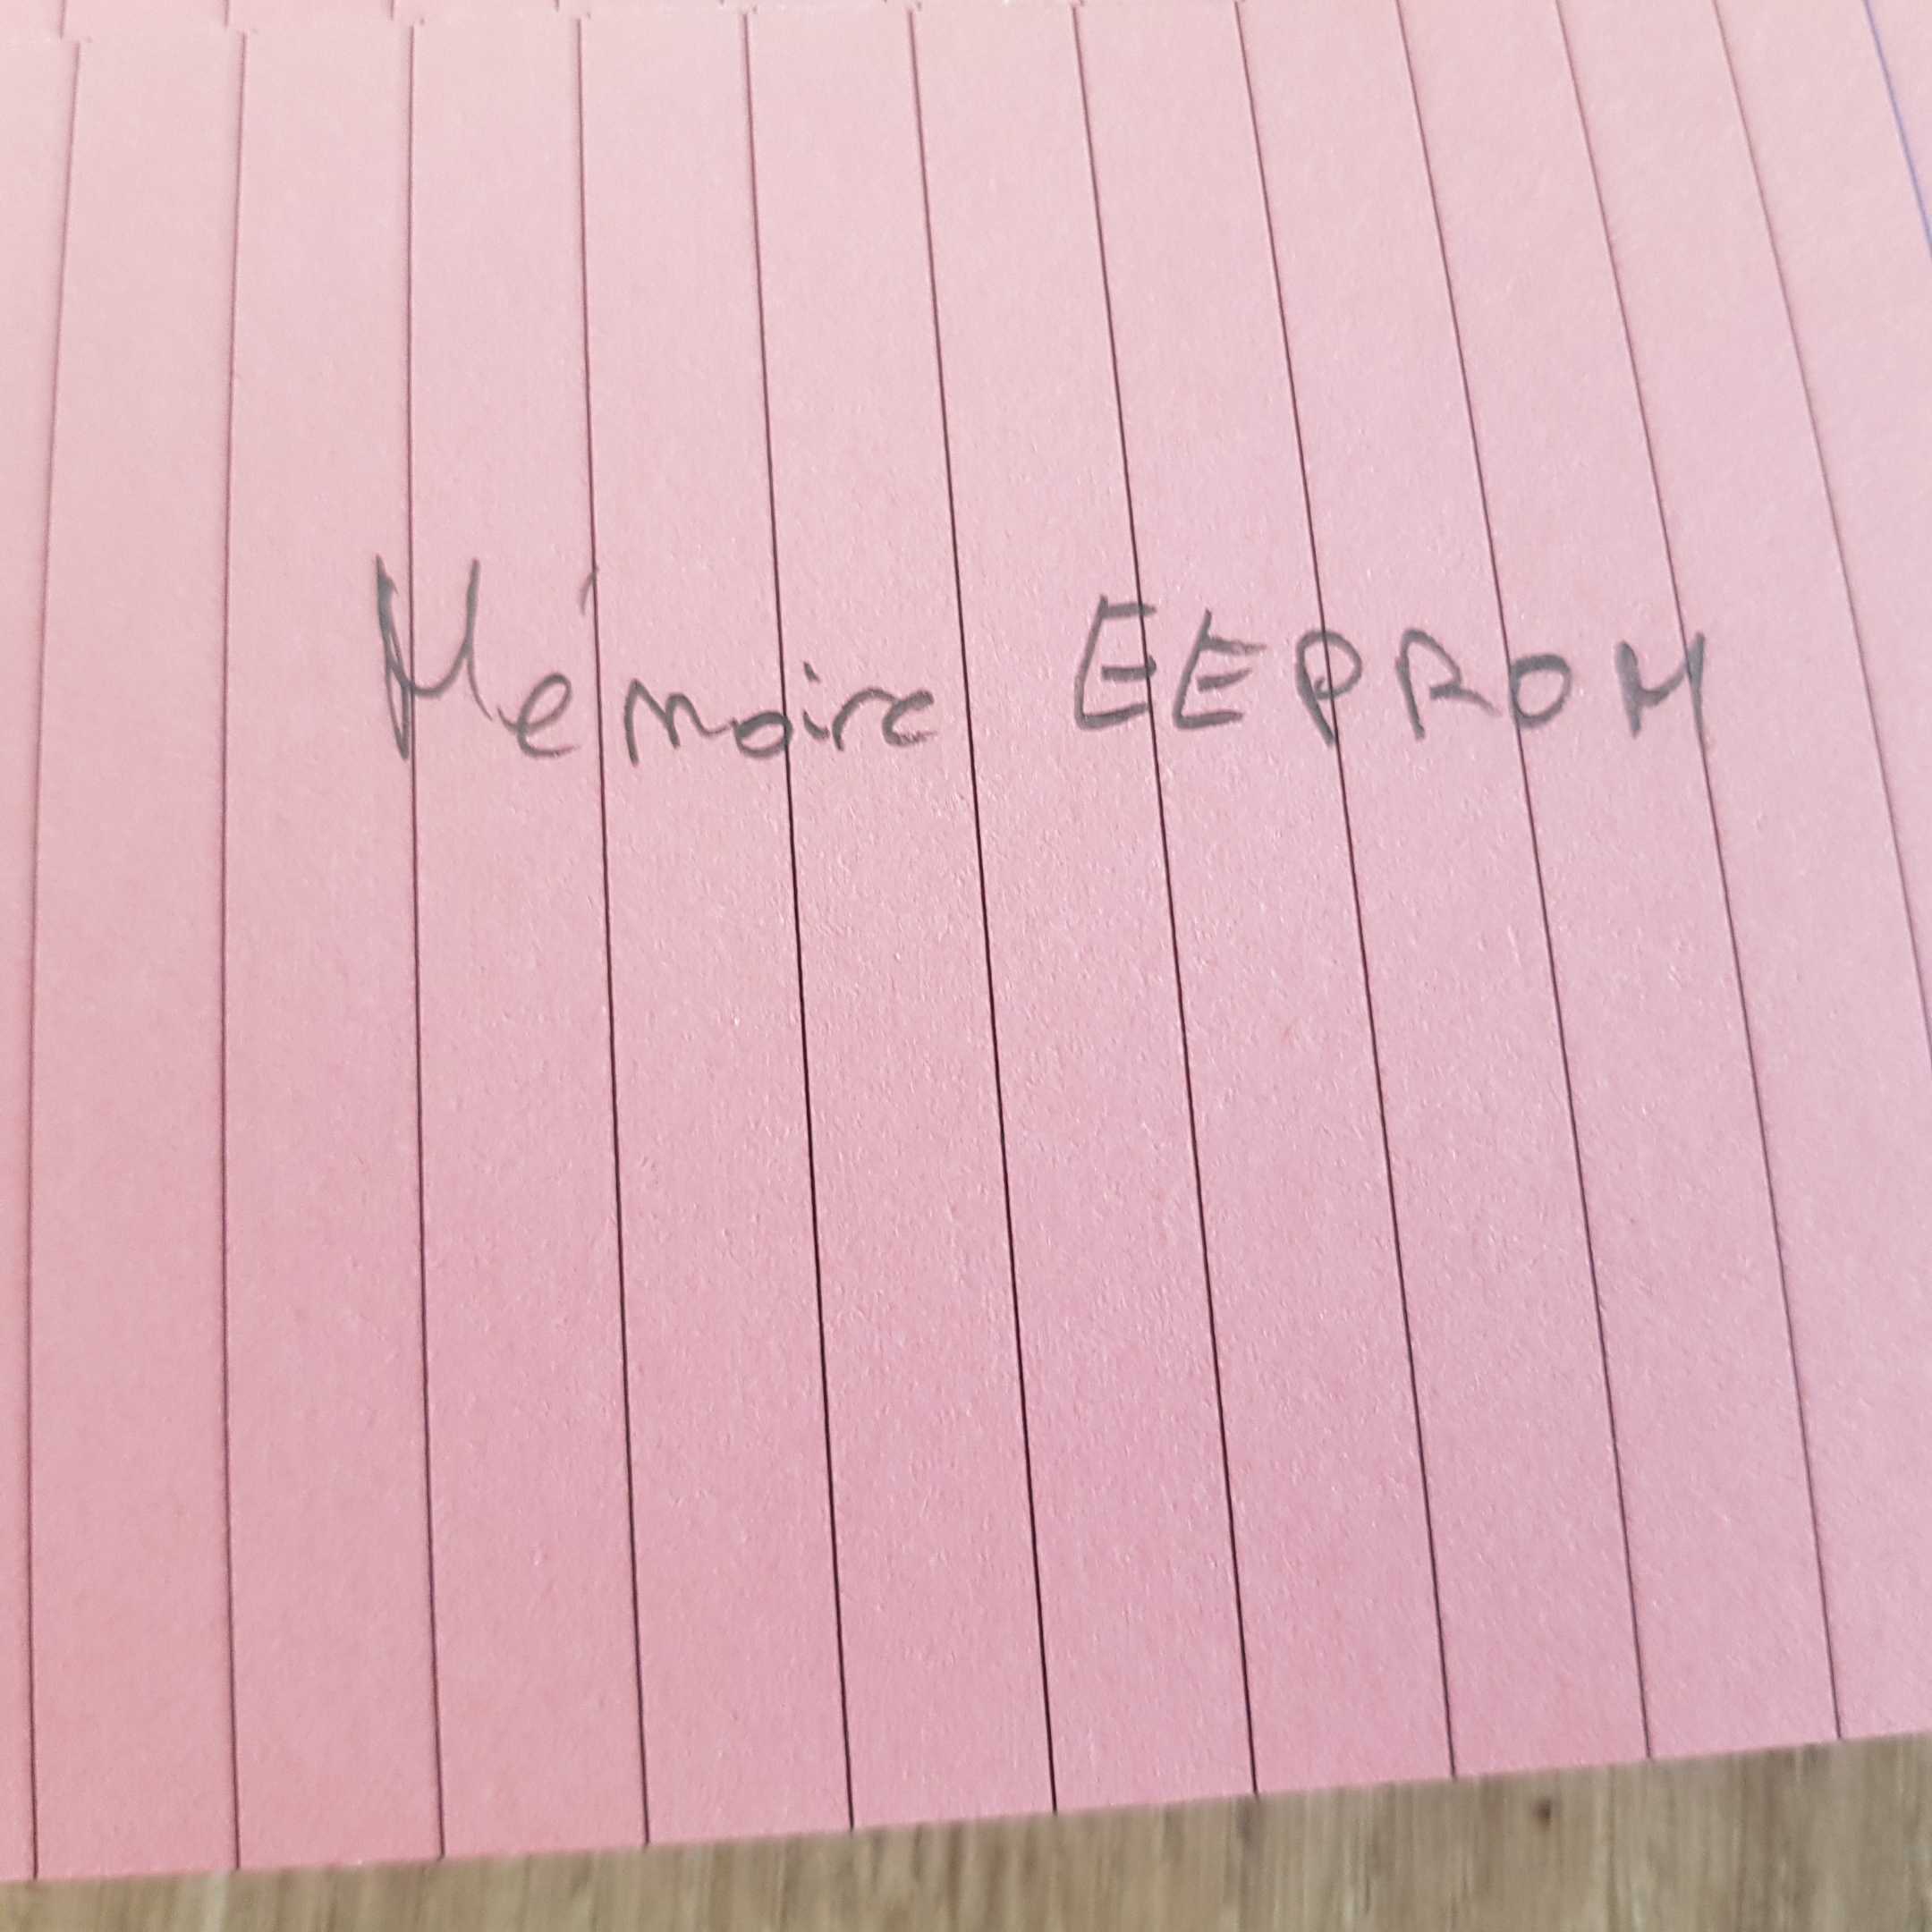 Mémoire EEPROM